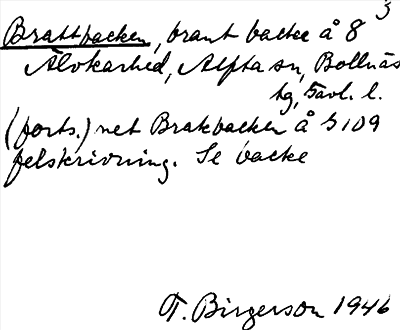 3
Brattbacken, brant backe å 8
Älvkarhed, Alfta sn, Bollnäs
tg, Gävl. l.
(forts.) net Brakbacken å S 109
felskrivning. Se backe
T. Birgerson 1946